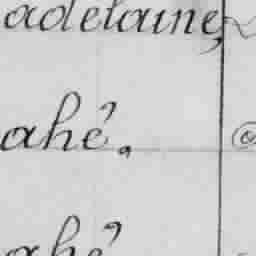 adelaine,
ahé.
ahé